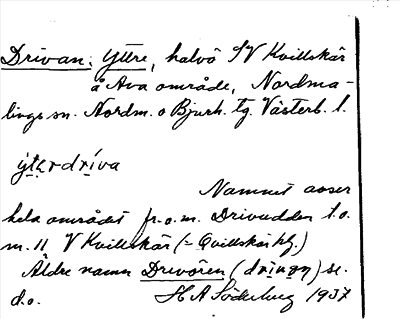 Drivan, Yttre, halvö SV Kvillskär
å Ava område, Nordma-
lings sn. Nordm. o Bjurh. tg. Västerb. l.
ýterdríva
Namnet avser
hela området fr.o.m. Drivudden t.o.
m. 11 V Kvillskär (= Qvillskär kfj.)
Äldre namn Drivören (drìvøn) se.
d.o. H A Söderberg 1937